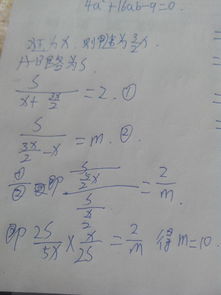 4a²+16ab-9=0.
对x, 则甲速为3/2 x.
AB路程为S.
S/(x+3x/2)=2. ①
S/(3x/2-x)=m. ②
①/② 即 =2/m
即 2S/5x × x/2S = 2/m 得 m=10.